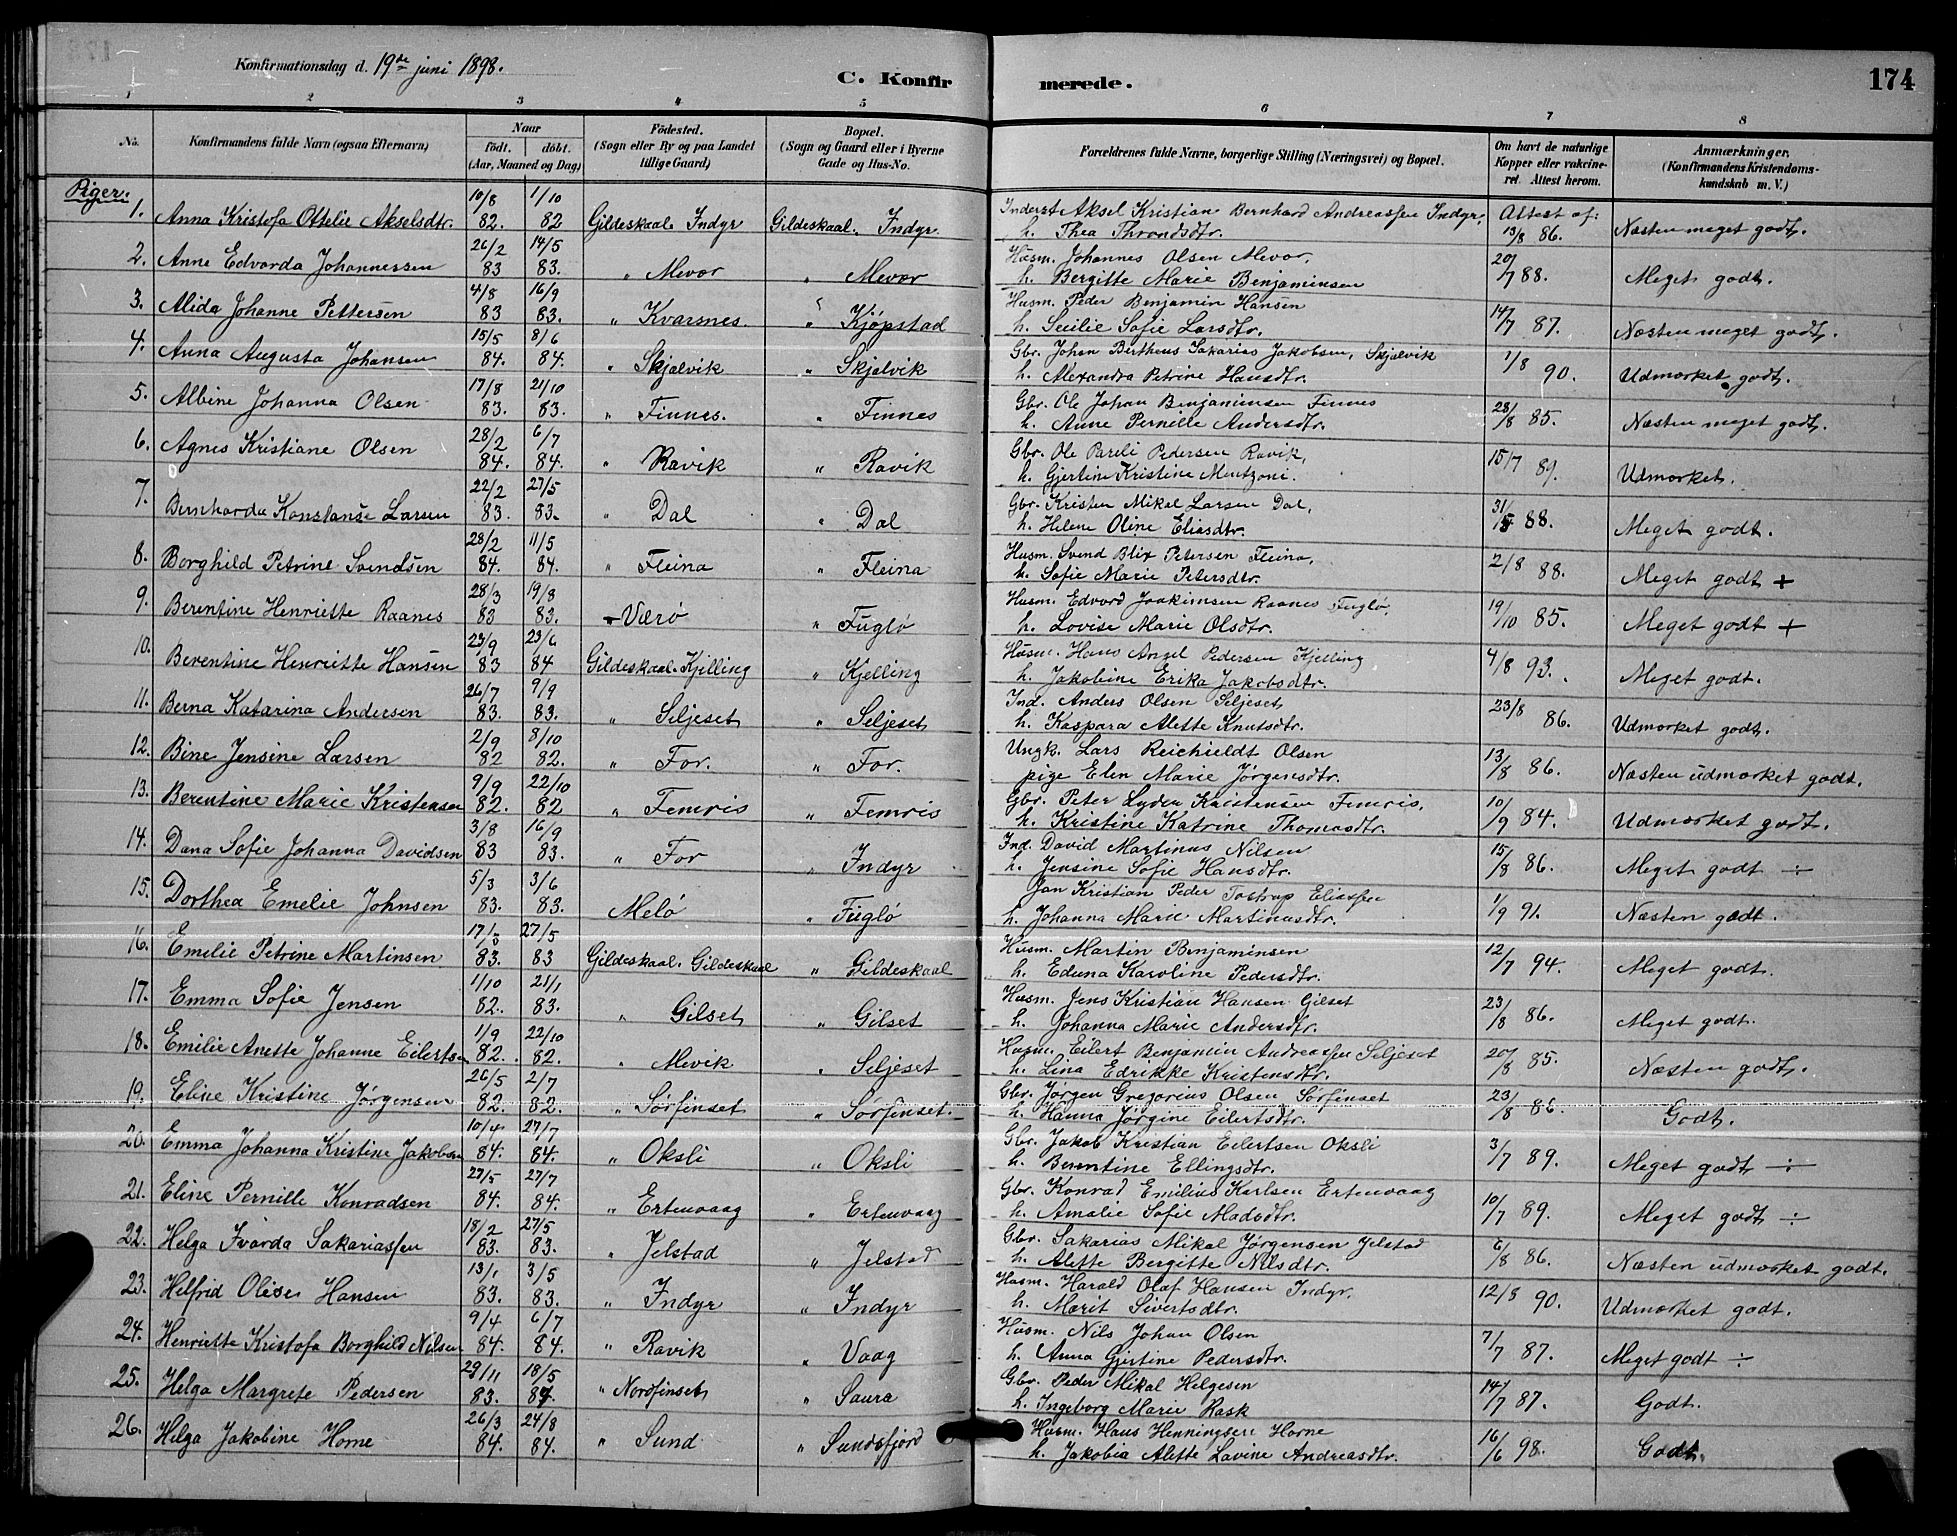 Konfirmationsdag d. 19de juni 1898.
C. Konfirmerede.
174
1 2 3 4 5 6 7 8
No. Konfirmandens fulde Navn (ogsaa Efternavn) Naar födt. döbt. (Aar, Maaned og Dag) Födested. (Sogn eller By og paa Landet tillige Gaard) Bopæl. (Sogn og Gaard eller i Byerne Gade og Hus-No. Forældrenes fulde Navne, borgerlige Stilling (Næringsvei) og Bopæl. Om havt de naturlige Kopper eller vakcineret. Attest herom. Anmærkninger. (Konfirmandens Kristendomskundskab m. V.)
Piger.
1. Anna Kristofa Ottelie Akselsdtr. 10/8 82. 1/10 82 Gildeskaal. Indyr Gildeskaal. Indyr. Inderst Aksel Kristian Bernhard Andreassen Indyr, Attest af: 13/8 86. Næsten meget godt.
h. Thea Throndsdtr.
2. Anne Edvarda Johannessen 26/2 83 14/5 83. " Mevær " Mevær Husm. Johannes Olsen Mevær, 20/7 88. Meget godt.
h. Bergitte Marie Benjaminsen
3. Alida Johanne Pettersen 4/8 83 16/9 83. " Kvarsnes. " Kjøpstad Husm. Peder Benjamin Hansen 14/7 87. Næsten meget godt.
h. Secilie Sofie Larsdtr.
4. Anna Augusta Johansen 15/5 84. 8/6 84. " Skjælvik " Skjælvik Gbr. Johan Bertheus Sakarias Jakobsen, Skjælvik 1/8 90. Udmærket godt.
h. Alexandra Petrine Hansdtr.
5. Albine Johanna Olsen 17/8 83. 21/10 83. " Finnes. " Finnes Gbr. Ole Johan Benjaminsen Finnes 28/8 85. Næsten meget godt.
h. Anne Pernille Andersdtr.
6. Agnes Kristiane Olsen 28/2 84. 6/7 84. " Ravik " Ravik Gbr. Ole Pareli Pedersen Ravik, 15/7 89. Udmærket.
h. Gjertine Kristine Mentzoni.
7. Bernharda Konstanse Larsen 22/2 83. 27/5 83. " Dal " Dal Gbr. Kristen Mikal Larsen Dal, 88. Meget godt.
h. Helene Oline Eliasdtr.
8. Borghild Petrine Svendsen 28/2 84. 11/5 84. " Fleina " Fleina Husm. Svend Blix Petersen Fleina, 2/8 88. Meget godt +
h. Sofie Marie Petersdtr.
9. Berentine Henriette Raanes 28/3 83 19/8 83. Værø " Fuglø Husm. Edvard Joakimsen Raanes Fuglø, 19/10 85. Meget godt +
h. Lovise Marie Olsdtr.
10. Berentine Henriette Hansen 23/9 83 23/6 84 Gildeskaal. Kjilling " Kjelling Husm. Hans Angel Pedersen Kjelling 4/8 93. Meget godt.
h. Jakobine Erika Jakobsdtr.
11. Berna Katarina Andersen 26/7 83. 9/9 83. " Seljeset " Seljeset Ind. Anders Olsen Seljeset 23/8 86. Udmærket godt.
h. Kaspara Alette Knutsdtr.
12. Bine Jensine Larsen 2/9 82 8/10 82. " For. " For. Ungk. Lars Reichieldt Olsen 13/8 86. Næsten udmærket godt.
pige Elen Marie Jørgensdtr.
13. Berentine Marie Kristensen 9/9 82. 22/10 82 " Femris " Femris Gbr. Peter Lyder Kristensen Femris, 10/9 84. Udmærket godt.
h. Kristine Katrine Thomasdtr.
14. Dana Sofie Johanna Davidsen 3/8 83 16/9 83. " For " Indyr Ind. David Martinus Nilsen 15/8 86. Meget godt ÷
h. Jensine Sofie Hansdtr.
15. Dorthea Emelie Johnsen 5/3 83. 3/6 83. Melø " Fuglø Jan Kristian Peder Tostrup Eliassen 1/9 91. Næsten godt.
h. Johanna Marie Martinusdtr.
16. Emelie Petrine Martinsen 83. 27/5 83 Gildeskaal. Gildeskaal " Gildeskaal Husm. Martin Benjaminsen 12/7 94. Meget godt.
h. Eduna Karoline Pedersdtr.
17. Emma Sofie Jensen 1/10 82. 21/1 83. " Gilset " Gilset Husm. Jens Kristian Hansen Gilset 23/8 86. Meget godt.
h. Johanna Marie Andersdtr.
18. Emilie Anette Johanne Eilertsen 1/9 82. 22/10 82. " Mevik " Seljeset Husm. Eilert Benjamin Andreassen Seljeset 20/8 85. Næsten godt.
h. Lina Edrikke Kristensdtr.
19. Eline Kristine Jørgensen 26/5 82. 2/7 82. " Sørfinset " Sørfinset. Gbr. Jørgen Gregorius Olsen Sørfinset 23/8 86. Godt.
h. Hanna Jørgine Eilertsdtr.
20. Emma Johanna Kristine Jakobsen 10/4 84. 27/7 84. " Oksli " Oksli Gbr. Jakob Kristian Eilertsen Oksli 3/7 89. Meget godt ÷
h. Berentine Ellingsdtr.
21. Eline Pernille Konradsen 27/5 84. 27/7 84. " Ertenvaag " Ertenvaag Gbr. Konrad Emilius Karlsen Ertenvaag 10/7 89. Meget godt ÷
h. Amalie Sofie Madsdtr.
22. Helga Ivarda Sakariassen 18/2 83. 27/5 83. " Jelstad " Jelstad Gbr. Sakarias Mikal Jørgensen Jelstad 6/8 86. Næsten udmærket godt.
h. Alette Bergitte Nilsdtr.
23. Helfrid Olise Hansen 13/1 83. 3/5 83. " Indyr " Indyr Husm. Harald Olaf Hansen Indyr. 12/8 90. Udmærket godt.
h. Marit Sivertsdtr.
24. Henriette Kristofa Borghild Nilsen 9/4 84. 6/7 84. " Ravik " Vaag Husm. Nils Johan Olsen 7/7 87. Meget godt ÷
h. Anna Gjertine Pedersdtr.
25. Helga Margrete Pedersen 29/11 83. 18/5 84. " Nordfinset " Saura Gbr. Peder Mikal Helgesen 14/7 87. Godt.
h. Ingeborg Marie Rask
26. Helga Jakobine Horne 26/3 84. 24/8 84. " Sund " Sundsfjord Husm. Hans Henningsen Horne 16/6 98. Godt.
h. Jakobia Alette Lavine Andreasdtr.